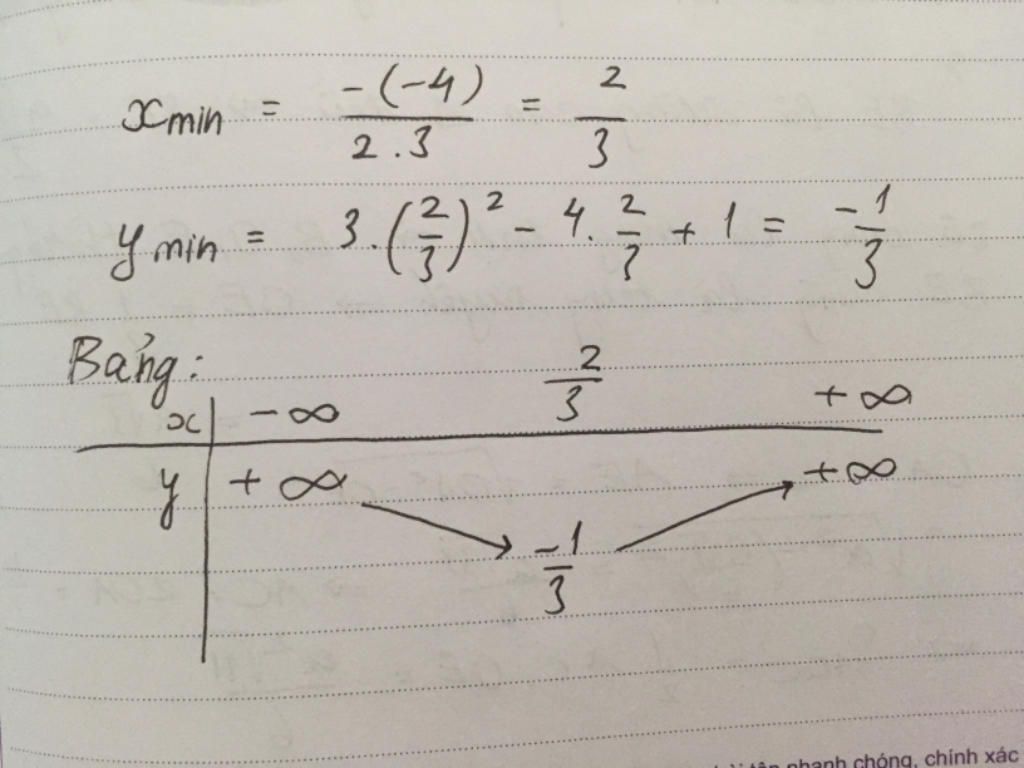 x_min = -(-4) / 2.3 = 2/3
y_min = 3.(2/3)² - 4.2/3 + 1 = -1/3
Bảng:
x | -∞ 2/3 +∞
y | +∞ ↘ -1/3 ↗ +∞
nhanh chóng, chính xác